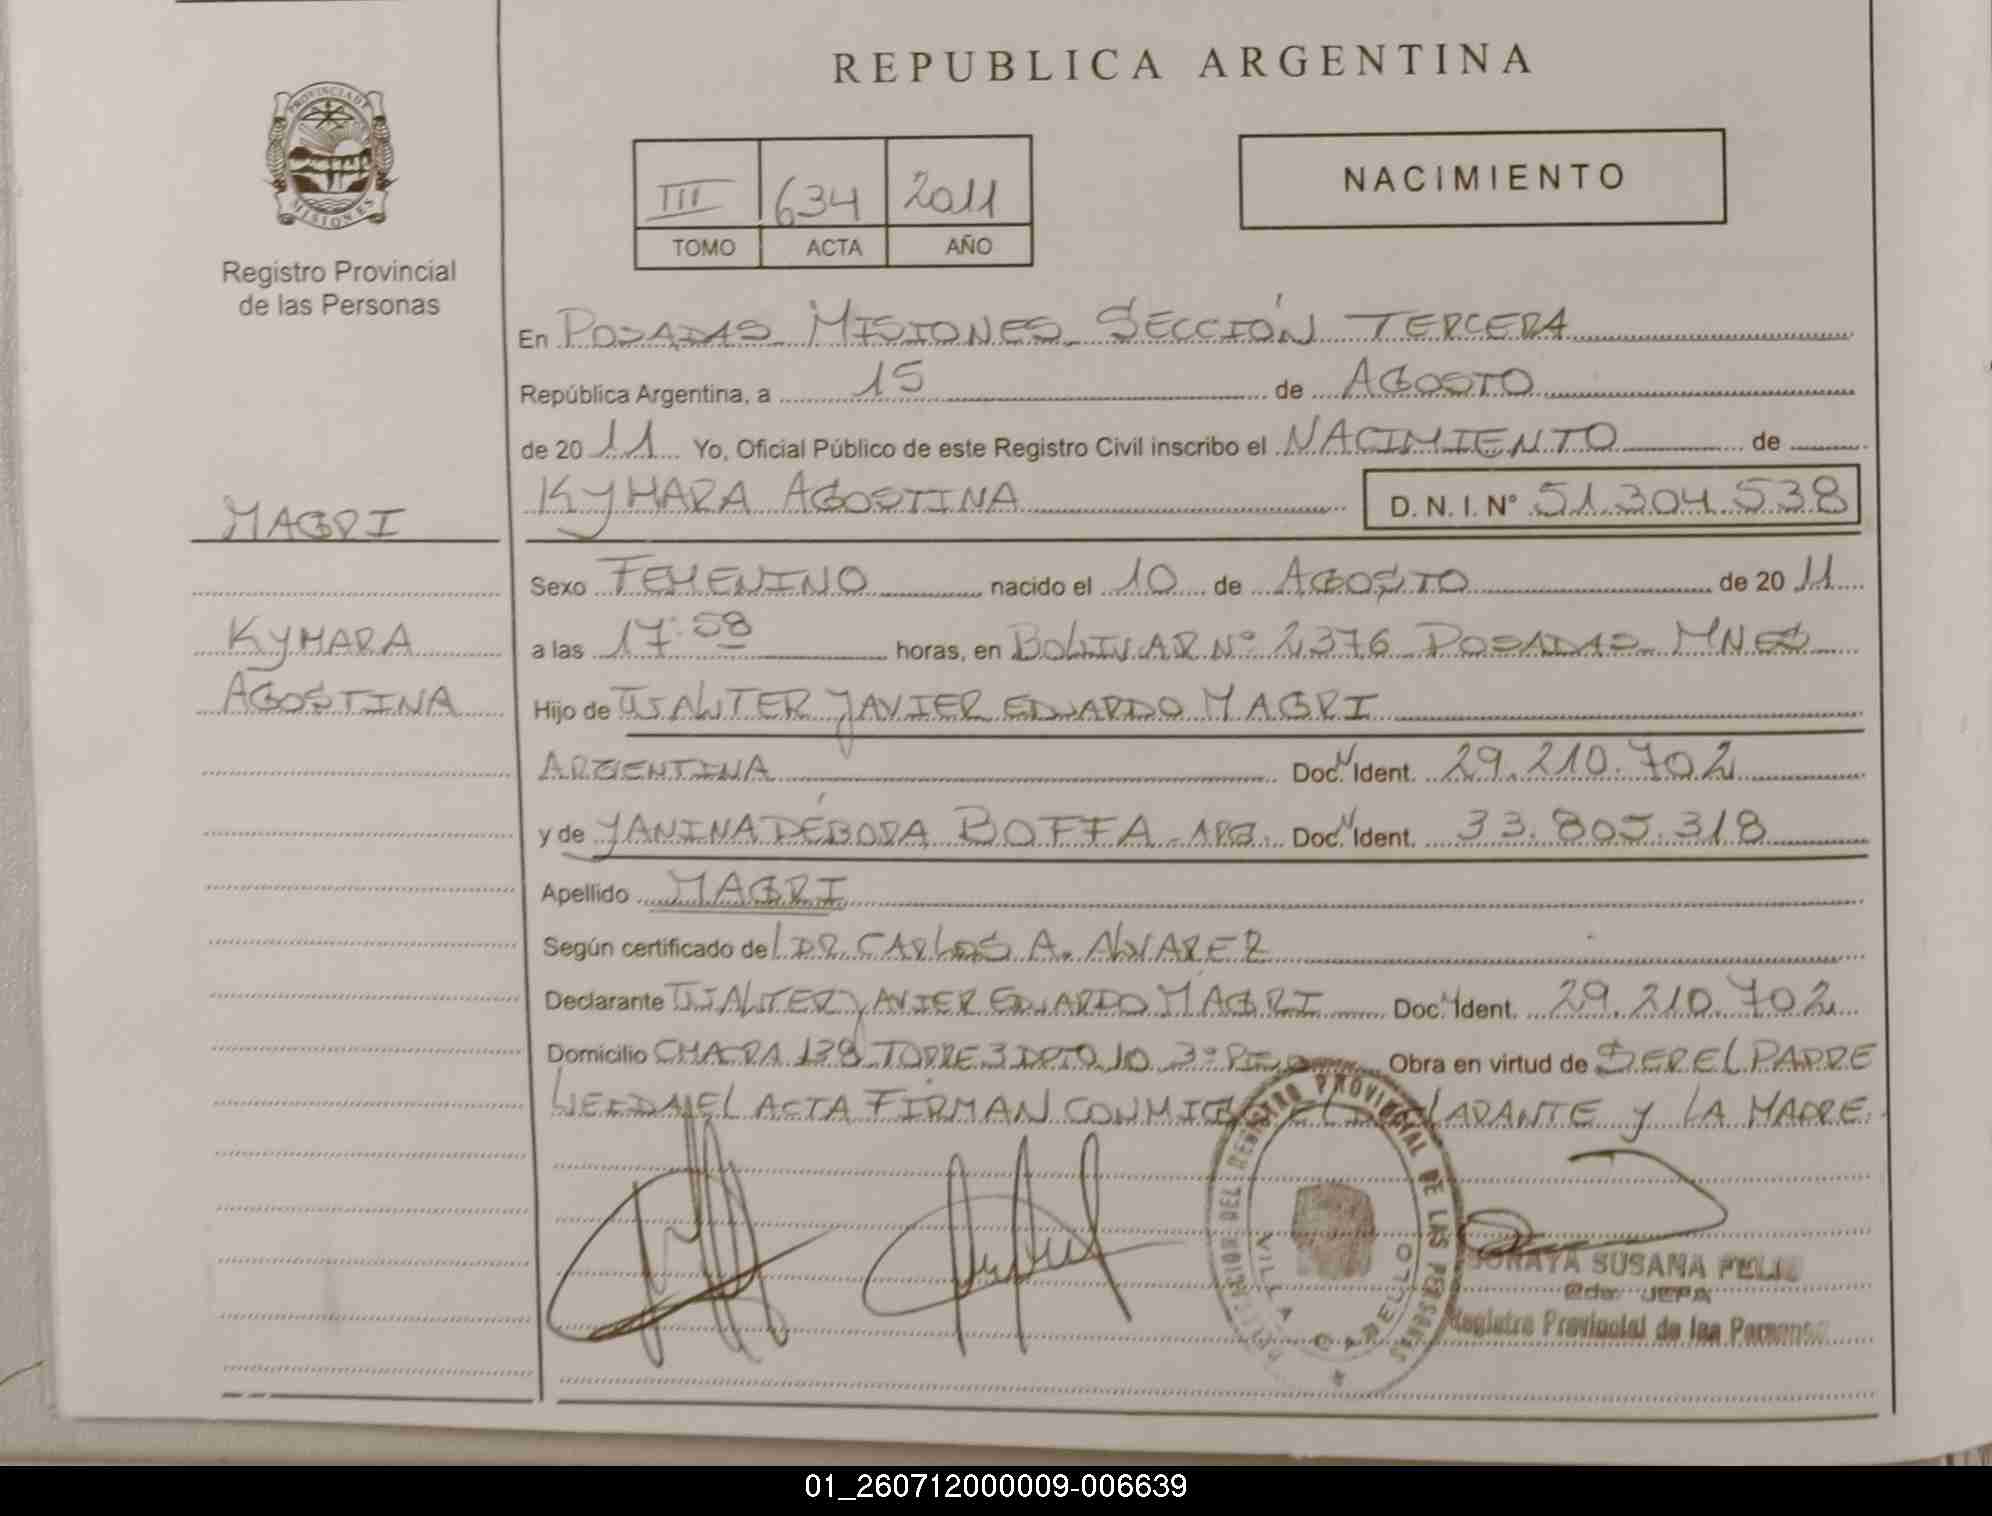 REPUBLICA ARGENTINA
PROVINCIA DE
MISIONES
Registro Provincial
de las Personas
III 634 2011
TOMO ACTA AÑO
NACIMIENTO
En POSADAS MISIONES SECCIÓN TERCERA
República Argentina, a 15 de AGOSTO
de 2011 Yo, Oficial Público de este Registro Civil inscribo el NACIMIENTO de
KYMARA AGOSTINA D. N. I. N° 51.304.538
MAGRI
KYMARA
AGOSTINA
Sexo FEMENINO nacido el 10 de AGOSTO de 2011
a las 17:58 horas, en BOLIVAR N° 2376 POSADAS MNES
Hijo de WALTER JAVIER EDUARDO MAGRI
ARGENTINA Doc. Ident. 29.210.702
y de YANINA DÉBORA BOFFA - ARG. Doc. Ident. 33.805.318
Apellido MAGRI
Según certificado de L DR. CARLOS A. ALVAREZ
Declarante WALTER JAVIER EDUARDO MAGRI Doc. Ident. 29.210.702
Domicilio CHACRA 138 TORRE 3 DPTO 10 3° PISO Obra en virtud de SER EL PADRE
LEIDA EL ACTA FIRMAN CONMIGO EL LARANTE Y LA MADRE.
DEL REGISTRO PROVINCIAL DE LAS PERSONAS
VILLA CABELLO
SORAYA SUSANA
JEFA
Registro Provincial de las Personas
01_260712000009-006639